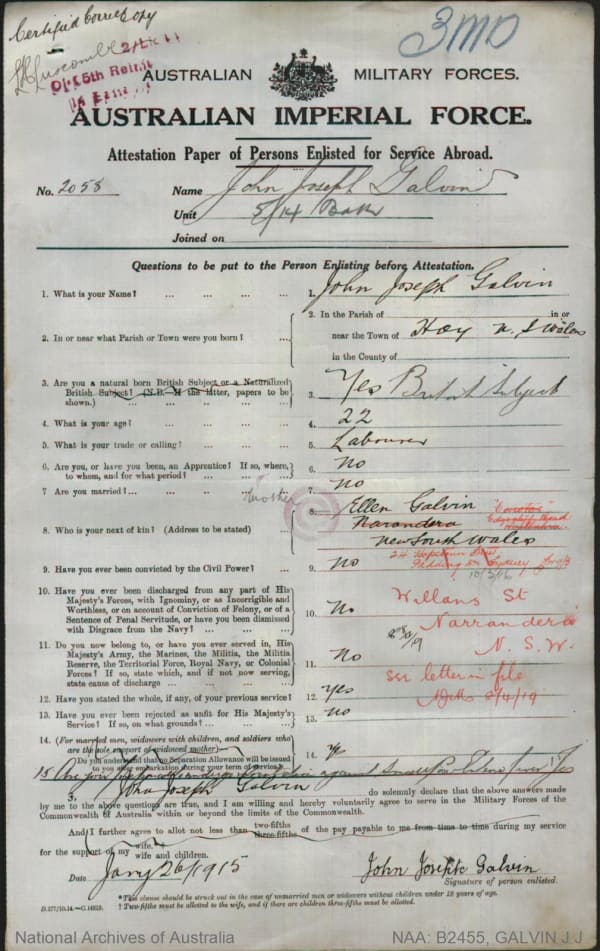 Certified Correct Copy
3MD
AUSTRALIAN MILITARY FORCES.
AUSTRALIAN IMPERIAL FORCE.
Attestation Paper of Persons Enlisted for Service Abroad.
No. 2058 Name John Joseph Galvin
Unit 5/14
Joined on
Questions to be put to the Person Enlisting before Attestation.
1. What is your Name? ... ... ... ... 1. John Joseph Galvin
2. In or near what Parish or Town were you born? ... 2. In the Parish of in or
near the Town of Hay N. S Wales
in the County of
3. Are you a natural born British Subject or a Naturalized
British Subject? (N.B.—If the latter, papers to be
shown.) 3. Yes British Subject
4. What is your age? 4. 22
5. What is your trade or calling? 5. Labourer
6. Are you, or have you been, an Apprentice? If so, where,
to whom, and for what period? 6. No
7. Are you married? 7. No
mother
8. Who is your next of kin? (Address to be stated) 8. Ellen Galvin
Narandera
New South Wales
24
Sydney
9. Have you ever been convicted by the Civil Power? 9. No
10. Have you ever been discharged from any part of His
Majesty's Forces, with Ignominy, or as Incorrigible and
Worthless, or on account of Conviction of Felony, or of a
Sentence of Penal Servitude, or have you been dismissed
with Disgrace from the Navy? 10. No
Willans St
Narrandera
N. S. W.
11. Do you now belong to, or have you ever served in, His
Majesty's Army, the Marines, the Militia, the Militia
Reserve, the Territorial Force, Royal Navy, or Colonial
Forces? If so, state which, and if not now serving,
state cause of discharge 11. No
see letter in file
12. Have you stated the whole, if any, of your previous service? 12. Yes
13. Have you ever been rejected as unfit for His Majesty's
Service? If so, on what grounds? 13. No
14. (For married men, widowers with children, and soldiers who
are the sole support of widowed mother)—
Do you understand that no Separation Allowance will be issued
to you after embarkation during your term of service? 14.
15 Are you prepared to undergo inoculation against Small Pox Enteric fever? Yes
I, John Joseph Galvin do solemnly declare that the above answers made
by me to the above questions are true, and I am willing and hereby voluntarily agree to serve in the Military Forces of the
Commonwealth of Australia within or beyond the limits of the Commonwealth.
And I further agree to allot not less than two-fifths three-fifths of the pay payable to me from time to time during my service
for the support of my wife. wife and children.
Date Jany 26/1915 John Joseph Galvin
Signature of person enlisted.
* This clause should be struck out in the case of unmarried men or widowers without children under 18 years of age.
† Two-fifths must be allotted to the wife, and if there are children three-fifths must be allotted.
National Archives of Australia NAA: B2455, GALVIN J J